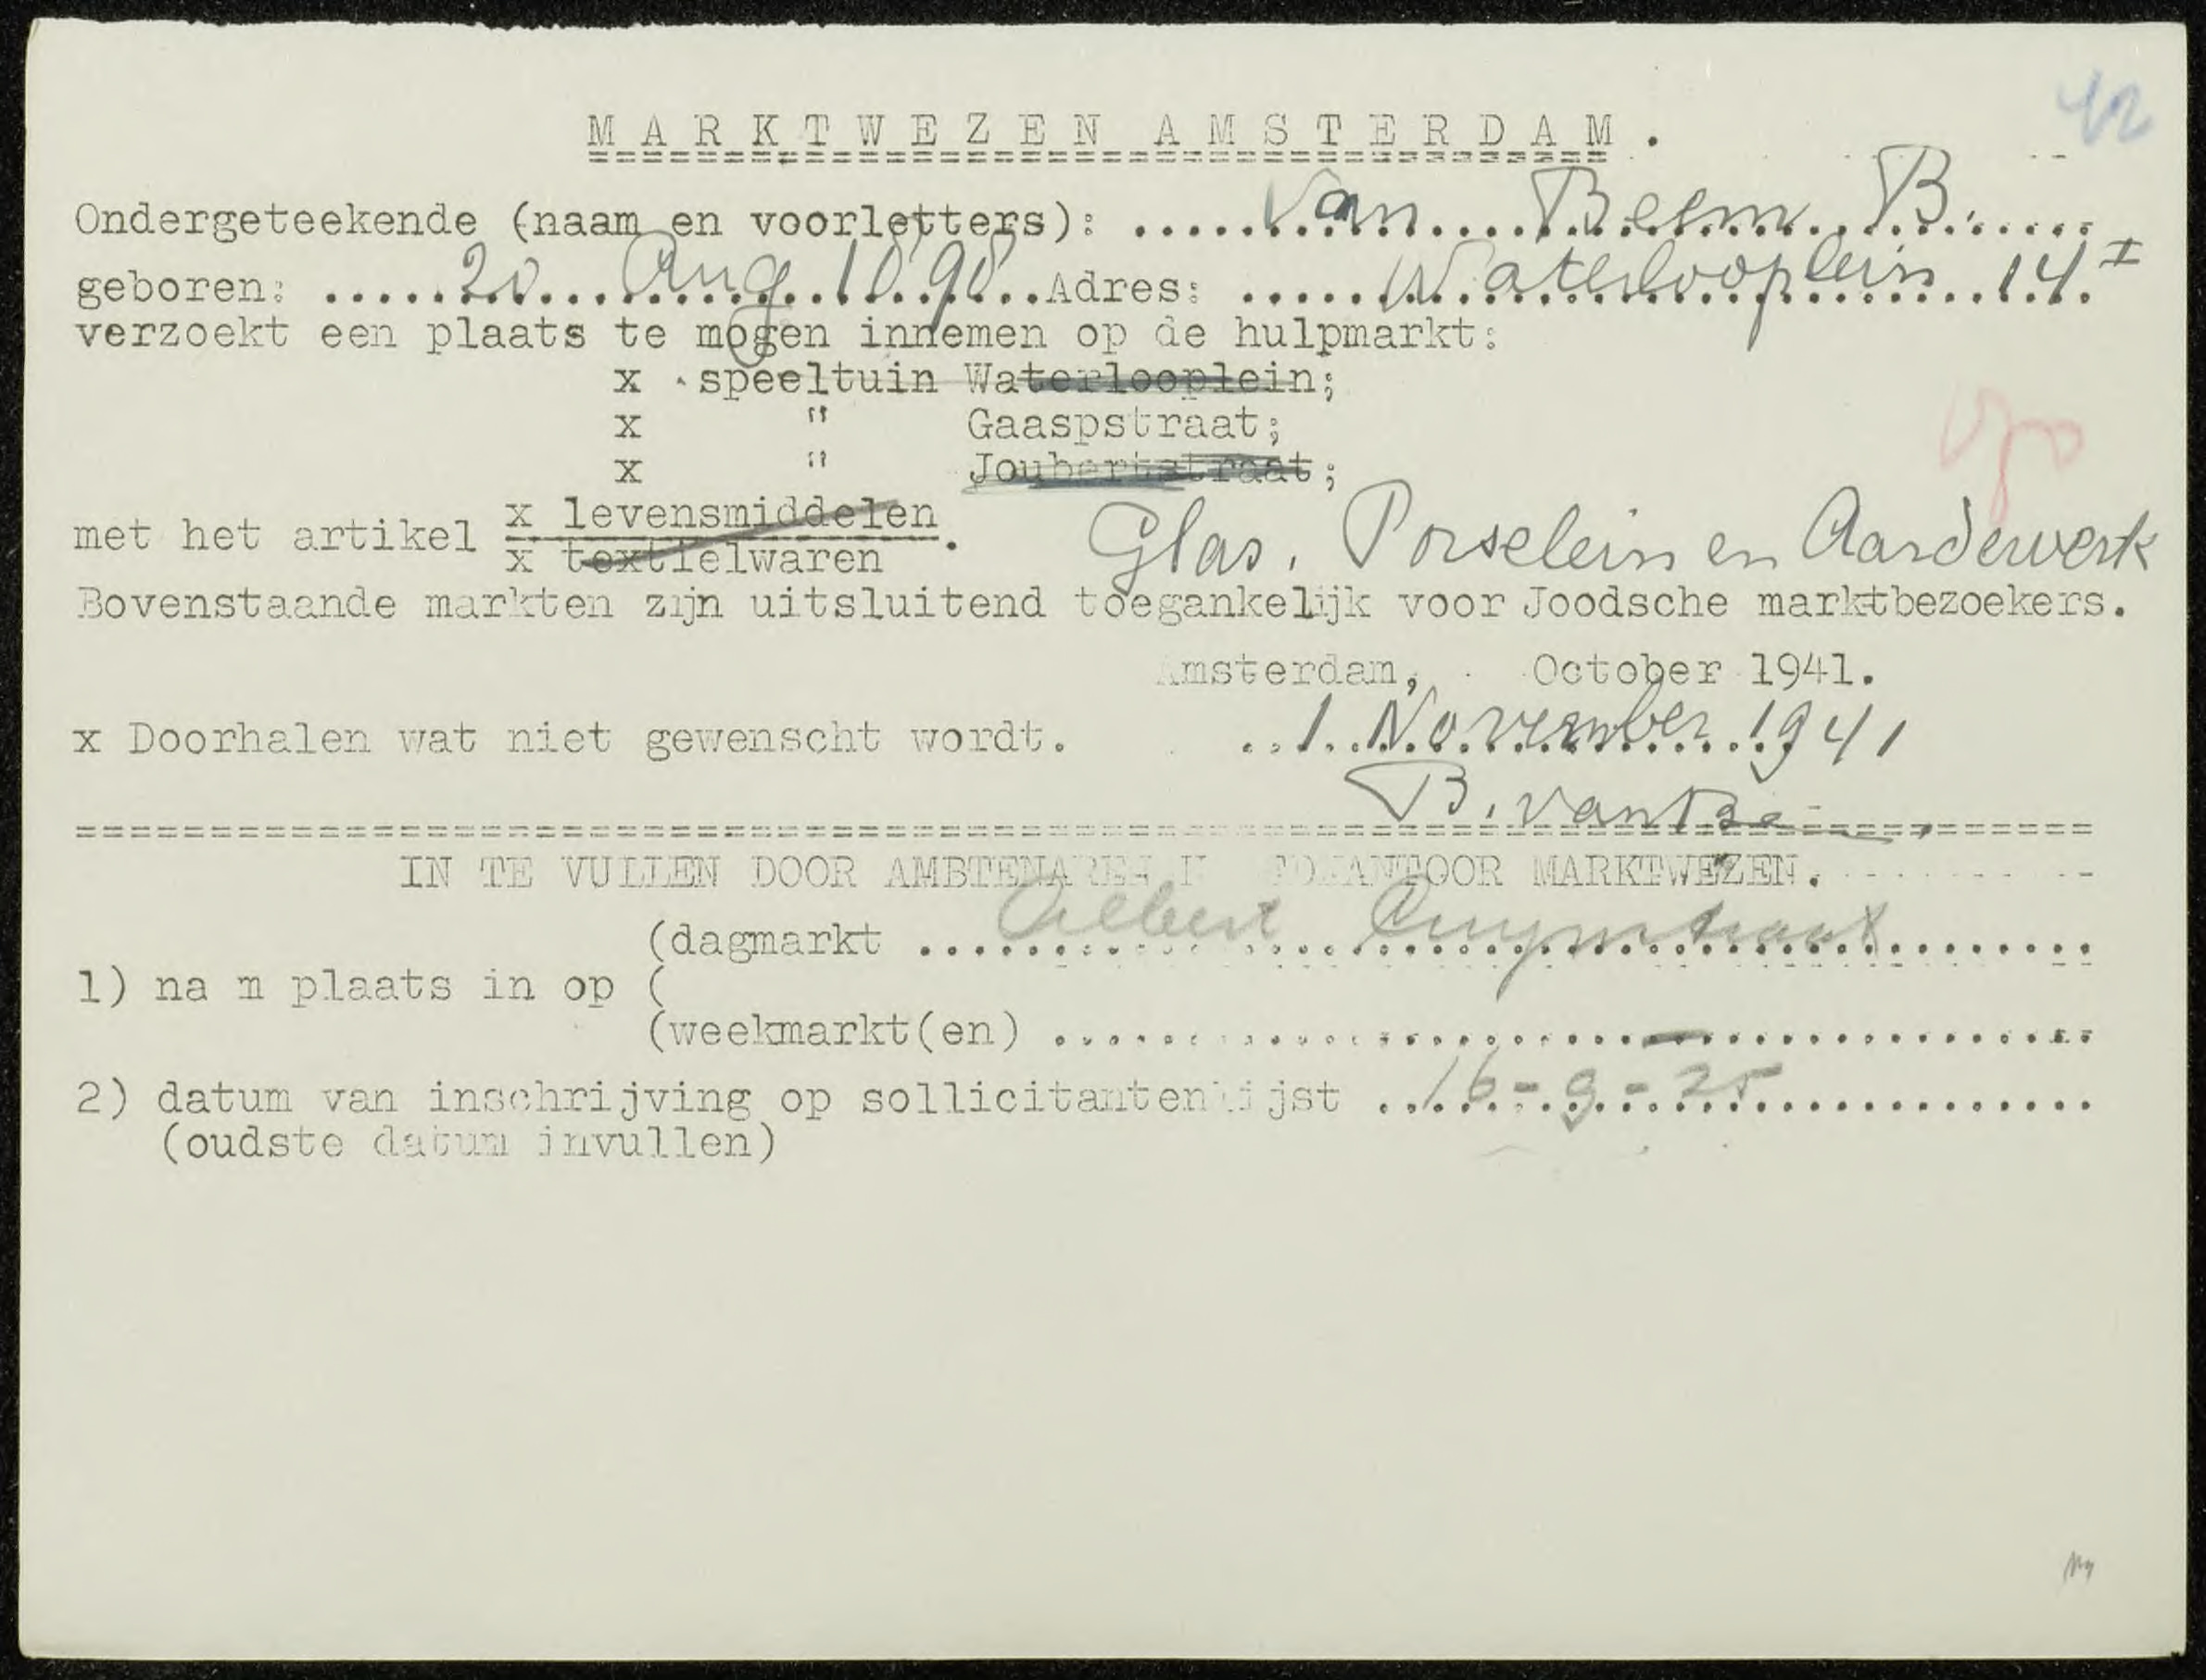 42
MARKTWEZEN AMSTERDAM.
Ondergeteekende (naam en voorletters): Van Beem B.
geboren: 20 Aug 1898 Adres: Waterlooplein 14 I
verzoekt een plaats te mogen innemen op de hulpmarkt:
x speeltuin Waterlooplein;
x " Gaaspstraat;
x " Joubertstraat;
x levensmiddelen
met het artikel . Glas, Porselein en Aardewerk
x textielwaren
Bovenstaande markten zijn uitsluitend toegankelijk voor Joodsche marktbezoekers.
Amsterdam, October 1941.
x Doorhalen wat niet gewenscht wordt. 1 November 1941
B. van Be
IN TE VULLEN DOOR AMBTENAREN HOOFDKANTOOR MARKTWEZEN.
(dagmarkt Albert Cuypstraat
1) nam plaats in op (
(weekmarkt(en) —
2) datum van inschrijving op sollicitantenlijst 16-9-25
(oudste datum invullen)